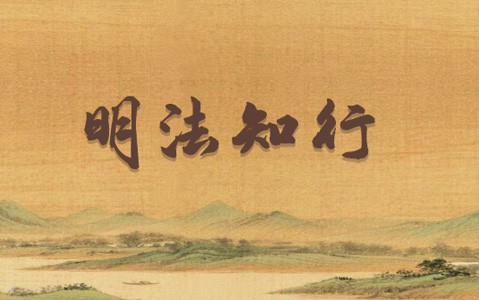 明法知行